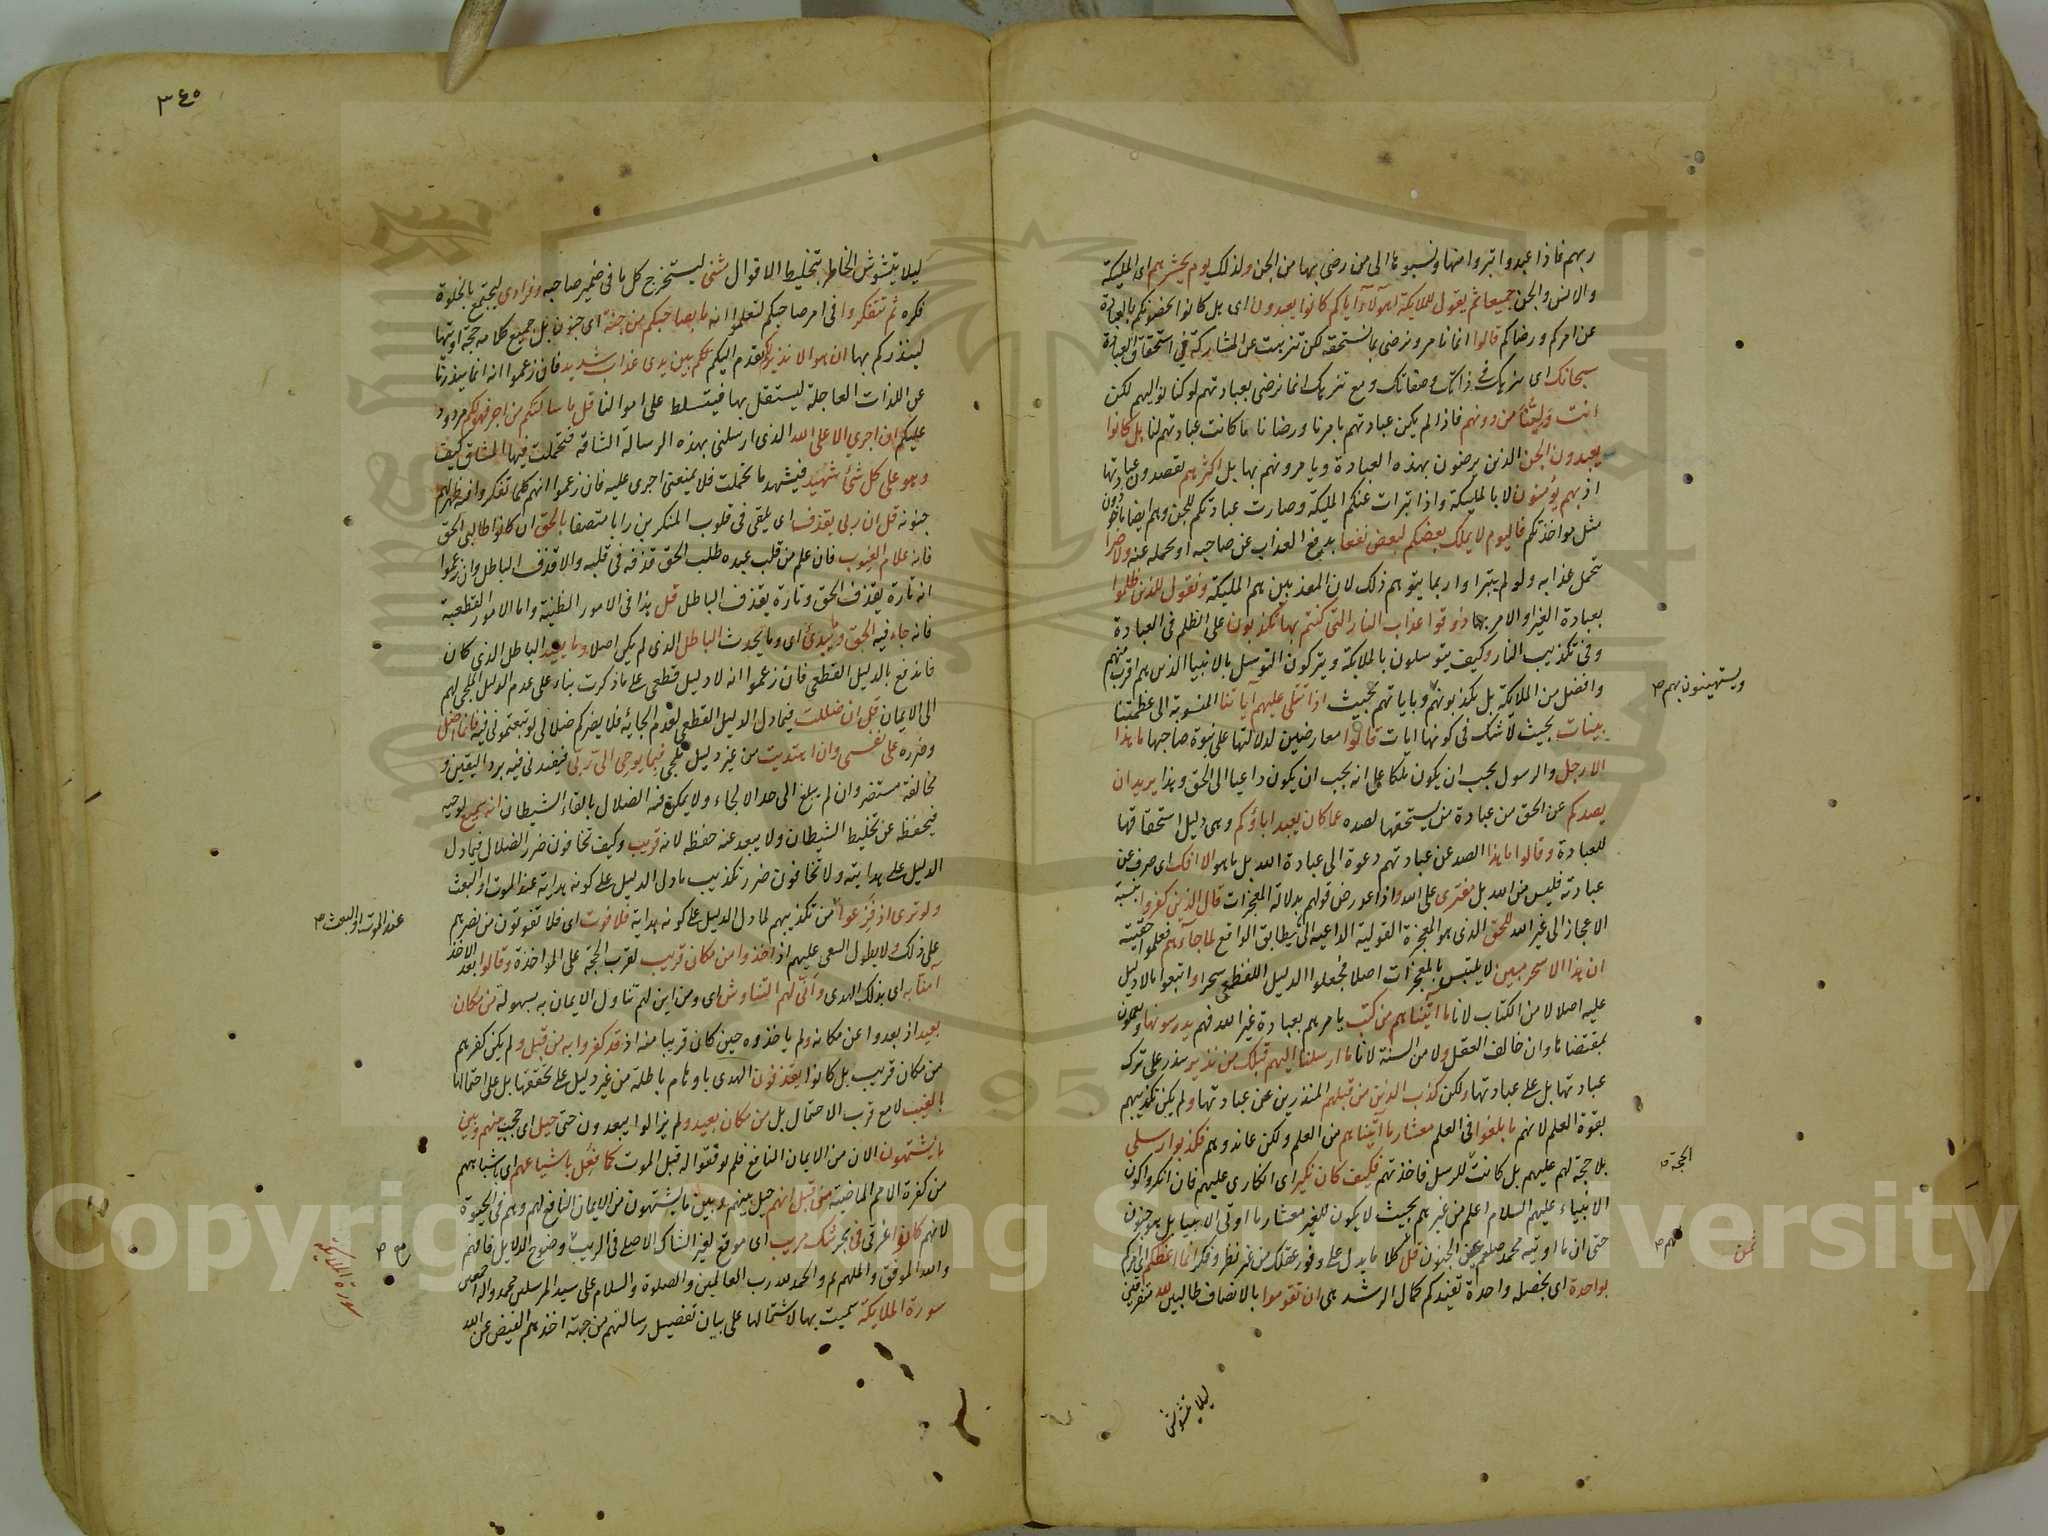 ربهم فاذا عبدوا تبروا منها ونسبوها الى من رضى بها من الجن ولذلك يوم يحشرهم اى المليكة
والانس والجن جميعا ثم يقول للملائكة اهؤلآء اياكم كانوا يعبدون اى بل كانوا يخضونكم بالعبادة
عن امركم ورضاكم قالوا انما نامر ونرضى بما نستحقه لكن تنزهت عن المشاركة في استحقاق العبادة
سبحانك اى ننزهك في ذاتك وصفاتك ومع تنزهك انما نرضى بعبادتهم لو كنا نواليهم لكن
انت وليّنا من دونهم فاذا لم يكن عبادتهم بامرنا ورضانا ما كانت عبادتهم لنا بل كانوا
يعبدون الجن الذين يرضون بهذه العبادة ويامرونهم بها بل اكثرهم يقصدون عبادتها
اذ بهم يؤمنون لا بالمليكة واذا تبرات عنكم المليكة وصارت عبادتكم للجن وهم ايضا ماخوذون
مثل مواخذتكم فاليوم لا يملك بعضكم لبعض نفعا بدفع العذاب عن صاحبه او بحمله عنه ولا ضرا
بتحمل عذابه ولو لم يتبراوا ربما يتوهم ذلك لان المعذبين هم المليكة ونقول للذين ظلموا
بعبادة الغير او الامر بها ذوقوا عذاب النار التى كنتم بها تكذبون على الظلم فى العبادة
وفى تكذيب النار وكيف يتوسلون بالملائكة ويتركون التوسل بالانبيا الذين هم اقرب منهم
وافضل من الملائكة بل يكذبونهم وباياتهم بحيث اذا تتلى عليهم آياتنا المنسوبة الى عظمتنا
بينات بحيث لا شك فى كونها ايات قالوا معارضين لدلالتها على نبوة صاحبها ما هذا
الا رجل والرسول يجب ان يكون ملكا على انه يجب ان يكون داعيا الى الحق وهذا يريد ان
يصدكم عن الحق من عبادة من يستحقها لصده عما كان يعبد اباؤكم وهى دليل استحقاقها
للعبادة وقالوا ما هذا الصد عن عبادتهم دعوة الى عبادة الله بل ما هو الا افك اى صرف عن
عبادته فليس من الله بل مفترى على الله واذا عورض قولهم بدلالة المعجزات قال الذين كفروا بنسبة
الاعجاز الى غير الله للحق الذى هو المعجزة القولية الداعية الى ما يطابق الواقع لما جآءهم فعلموا حقيته
ان هذا الا سحر مبين لا يلتبس بالمعجزات اصلا فجعلوا الدليل القطعى سحرا واتبعوا ما لا دليل
عليه اصلا لا من الكتاب لانا ما آتيناهم من كتب يامرهم بعبادة غير الله فهم يدرسونها ويعملون
بمقتضاها وان خالف العقل ولا من السنة لانا ما ارسلنا اليهم قبلك من نذير ينذر على ترك
عبادتها بل على عبادتها ولكن كذب الذين من قبلهم المنذرين عن عبادتها ولم يكن تكذيبهم
بقوة العلم لانهم ما بلغوا فى العلم معشار ما آتيناهم من العلم ولكن عاندوهم فكذبوا رسلى
بلا حجة لهم عليهم بل كانت للرسل فاخذتهم فكيف كان نكير اى انكارى عليهم فان انكروا كون
الانبياء عليهم السلام اعلم من غيرهم بحيث لا يكون للغير معشار ما اوتى الانبيا بل هو جنون
حتى ان ما اوتيه محمد صلعم عين الجنون قل كلا ما يدل على وفور عقلك من غير نظر وفكر انما اعظكم اى آمركم
بواحدة اى بخصلة واحدة تفيدكم كمال الرشد هى ان تقوموا بالانصاف طالبين لله متفرقين
ويستهينون بهم
الحجة
ثمن
ليلا يتشوش
٣٤٥
ليلا يتشوش الخاطر بتخليط الاقوال مثنى ليستخرج كل ما فى ضمير صاحبه وفرادى ليجتمع بالخلوة
فكره ثم تتفكروا فى امر صاحبكم لتعلموا انه ما بصاحبكم من جنة اى جنون بل جميع كلامه حجة اوتيها
لينذركم بها ان هو الا نذير لكم تقدم اليكم بين يدى عذاب شديد فان زعموا انه انما ينذرنا
عن اللذات العاجلة ليستقل بها فيتسلط على اموالنا قل ما سالتكم من اجر فهو لكم مردود
عليكم ان اجري الا على الله الذى ارسلنى بهذه الرسالة الشاقة فتحملت فيها المشاق كيف
وهو على كل شئ شهيد فيشهد ما تحملت فلا يمنعنى اجرى عليه فان زعموا انهم كلما تفكروا فيه ظهر لهم
جنونه قل ان ربى يقذف اى يلقى فى قلوب المنكرين رايا متصفا بالحق ان كانوا طالبى الحق
فانه علام الغيوب فان علم من قلب عبده طلب الحق قذفه فى قلبه والا قذف الباطل وان زعموا
انه تارة يقذف الحق وتارة يقذف الباطل قل هذا فى الامور الظنية واما الامور القطعية
فانه جاء فيه الحق وما يبدئ اى وما يحدث الباطل الذى لم يكن اصلا وما يعيد الباطل الذى كان
فاندفع بالدليل القطعى فان زعموا انه لا دليل قطعى على ما ذكرت بناء على عدم الدليل الملجى لهم
الى الايمان قل ان ضللت فيما دل الدليل القطعى لعدم الجائه فلا يضركم ضلالى لو تبعتمونى فيه فانما اضل
وضرره على نفسى وان اهتديت من غير دليل ملجى فبما يوحى الى ربى فيفيدنى فيه برد اليقين و
مخالفة مستضر وان لم يبلغ الى حد الالجاء ولا يمكن فيه الضلال بالقاء الشيطان انه سميع لوحيه
فيحفظه عن تخليط الشيطان ولا يبعد عنه حفظه لانه قريب وكيف تخافون ضرر الضلال فيما دل
الدليل على هدايته ولا تخافون ضرر تكذيب ما دل الدليل على كونه هداية عند الموت او البعث
ولو ترى اذ فزعوا من تكذيبهم لما دل الدليل على كونه هداية فلا فوت اى فلا تفوتون من نضرهم
على ذلك ولا يطول السعى عليهم اذ اخذوا من مكان قريب لقرب الحجة على المواخذة وقالوا بعد الاخذ
آمنا به اى بذلك الهدى وانّى لهم التناوش اى ومن اين لهم تناول الايمان به بسهولة من مكان
بعيد اذ بعدوا عن مكانه ولم ياخذوه حين كان قريبا منه اذ قد كفروا به من قبل ولم يكن كفرهم
من مكان قريب بل كانوا يقذفون الهدى باوهام باطلة من غير دليل على تحققها بل على احتمالها
بالغيب لا مع قرب الاحتمال بل من مكان بعيد ولم يزالوا يبعدون حتى حيل اى حجب بينهم وبين
ما يشتهون الان من الايمان النافع فلم يوفقوا له قبل الموت كما فعل باشياعهم اى باشباههم
من كفرة الامم الماضية من قبل انهم حيل بينهم وبين ما يشتهون من الايمان النافع لهم وهم فى الحيوة
لانهم كانوا غرقى فى بحر شك مريب اى موقع لغير الشاك الاصلى فى الريب وضوح الدلايل فافهم
والله الموفق والملهم تم والحمد لله رب العالمين والصلوة والسلام على سيد المرسلين محمد واله اجمعين
سورة المليكة سميت بها لاشتمالها على بيان تفصيل رسالتهم من جهة اخذهم الفيض عن الله
عند الموت او البعث
سورة الملائكة
Copyright © King Saud University